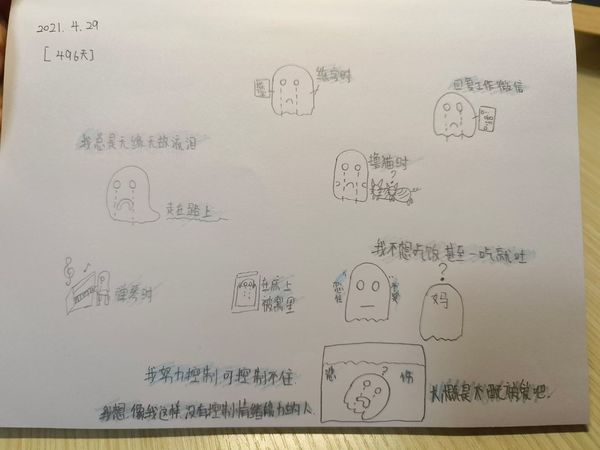 2021.4.29
[496天]
练字时
回复工作微信
我总是无缘无故流泪
走在路上
撸猫时
?
我不想吃饭甚至一吃就吐
弹琴时
在床上
被窝里
?
妈
我努力控制可控制不住
悲 伤
?
我想像我这样没有控制情绪能力的人
大概是不配被爱吧.